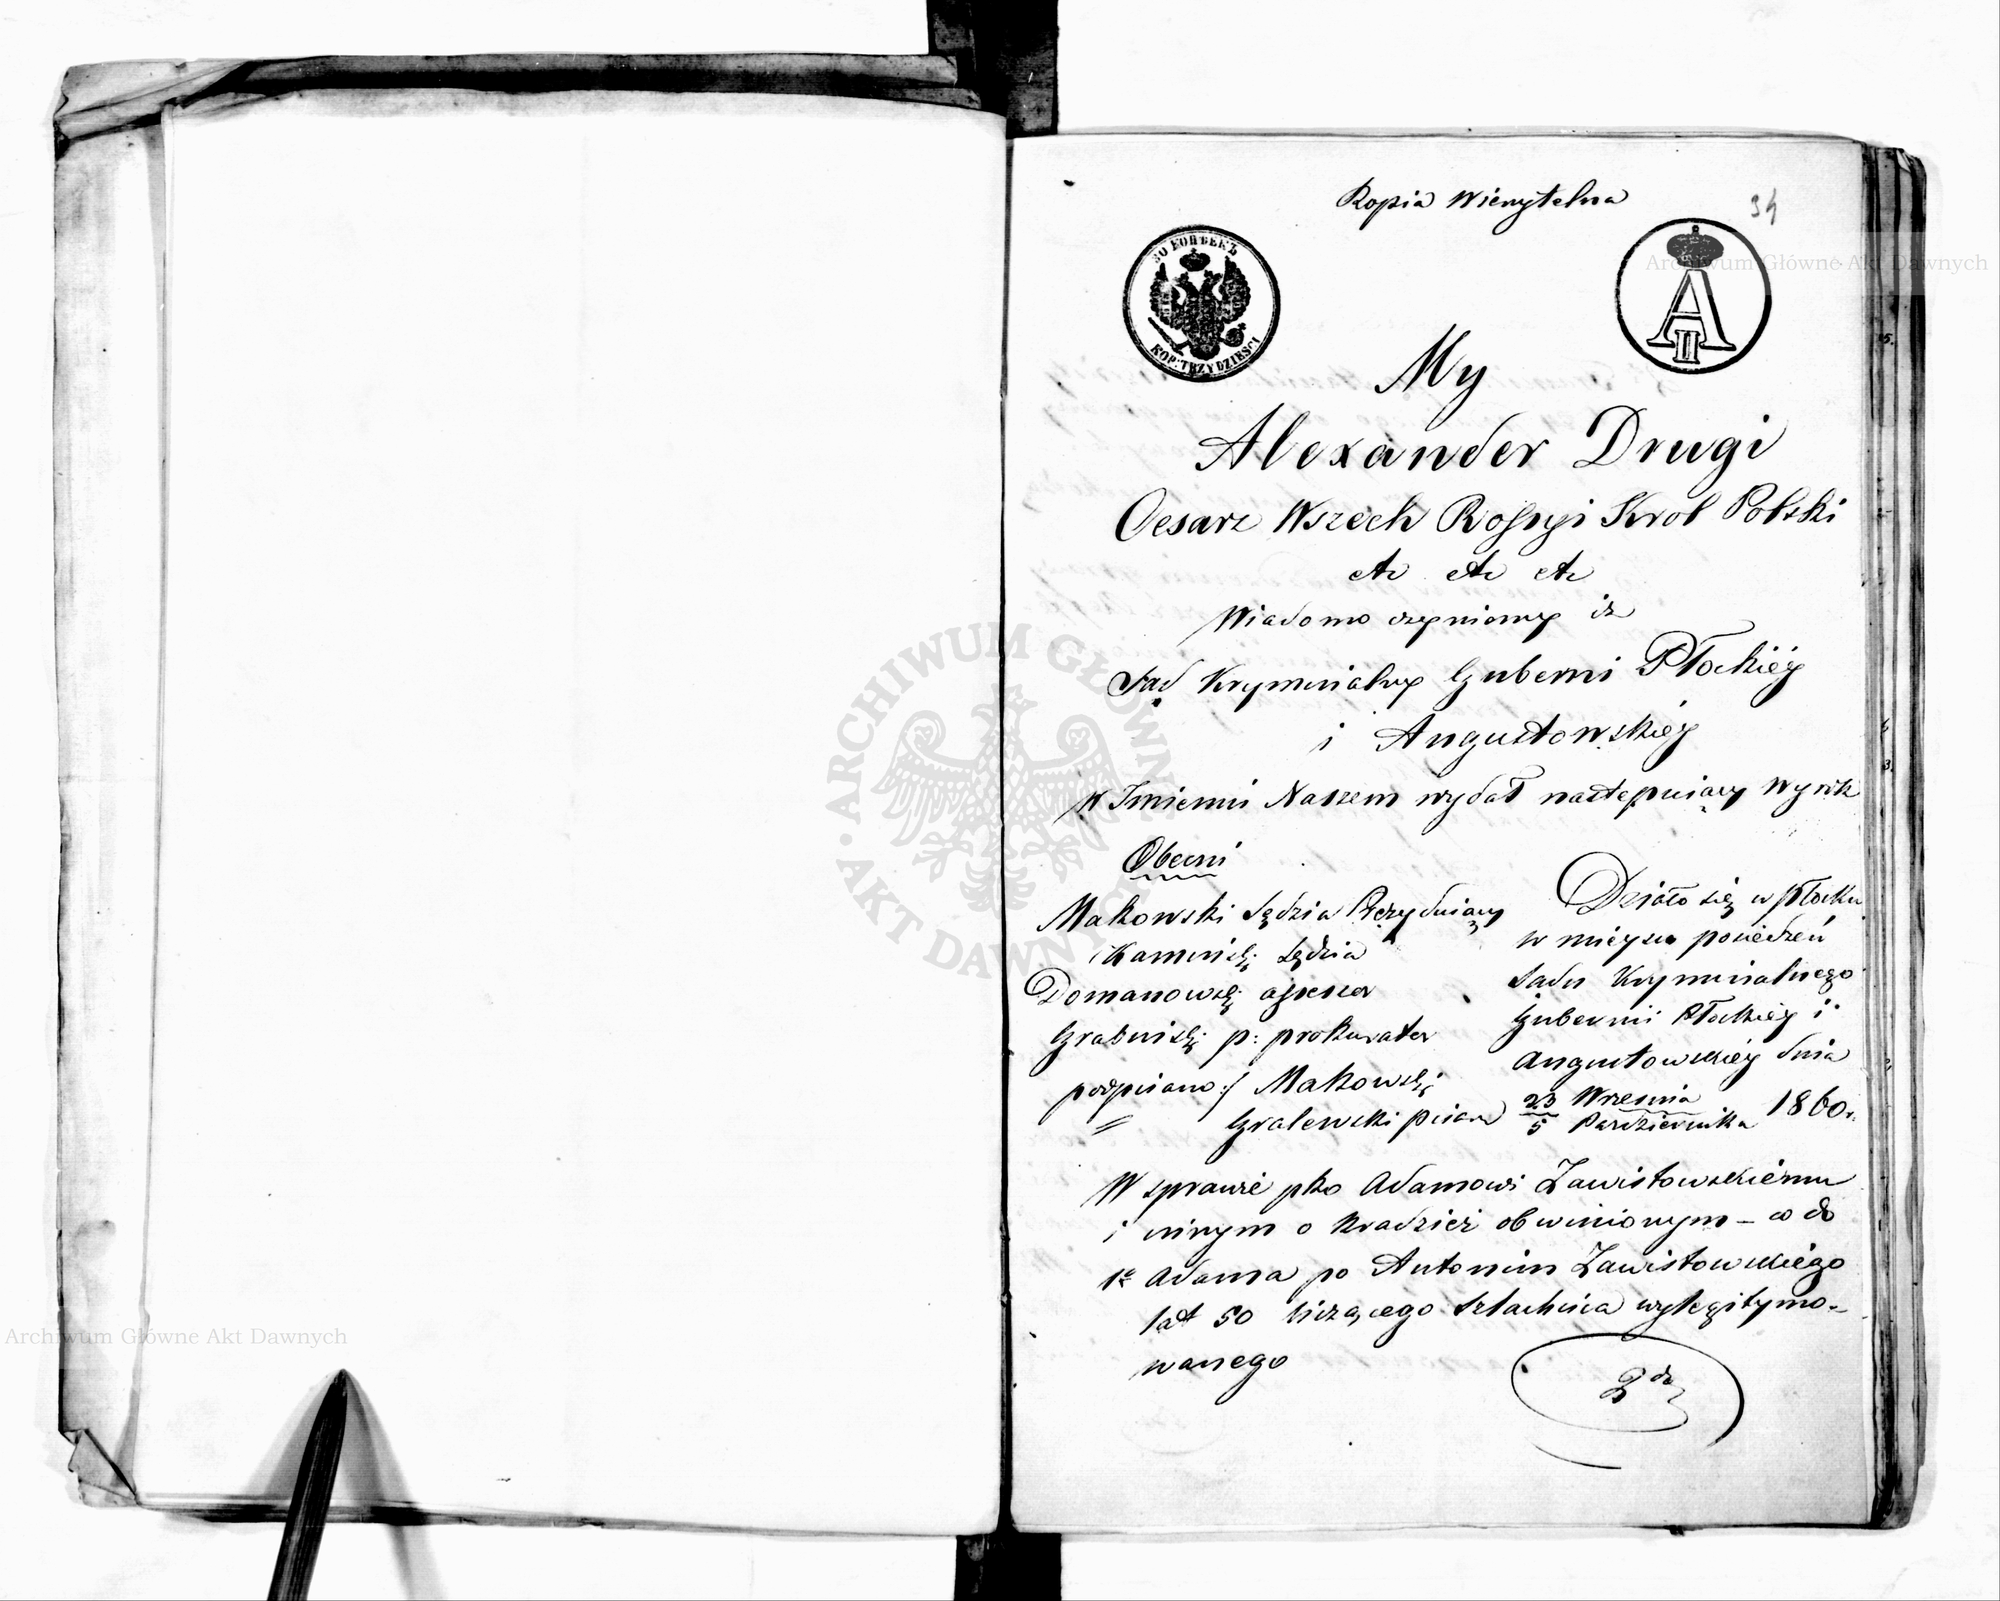 Kopia Wierzytelna
34
30 КОПѢЕКЪ
KOP: TRZYDZIEŚCI
A II
My
Alexander Drugi
Cesarz Wszech Rossyi Krol Polski
etc etc etc
Wiadomo czyniemy iż
Sąd Kryminalny Guberni Płockiéy
i Augustowskiéy
w Imieniu Naszem wydał następuiący Wyrok
Obecni
Makowski Sędzia Prezyduiący
Kamiński Sędzia
Domanowski assessor
Grabiński p: prokurator
podpisano:/ Makowski
Gralewski pisarz
Działo się w Płocku
w mieyscu posiedzeń
Sadu Kryminalnego
Gubernii Płockiey i
Augustowskiéy dnia
23 Wrzesnia
5 Pazdziernika 1860r.
W sprawie pko Adamowi Zawistowskiemu
i innym o kradzież obwinionym – co do
1e Adama po Antonim Zawistowskiego
lat 50 liczącego Szlachcica wylegitymo-
wanego
2do
ARCHIWUM GŁÓWNE AKT DAWNYCH
Archiwum Główne Akt Dawnych
Archiwum Główne Akt Dawnych